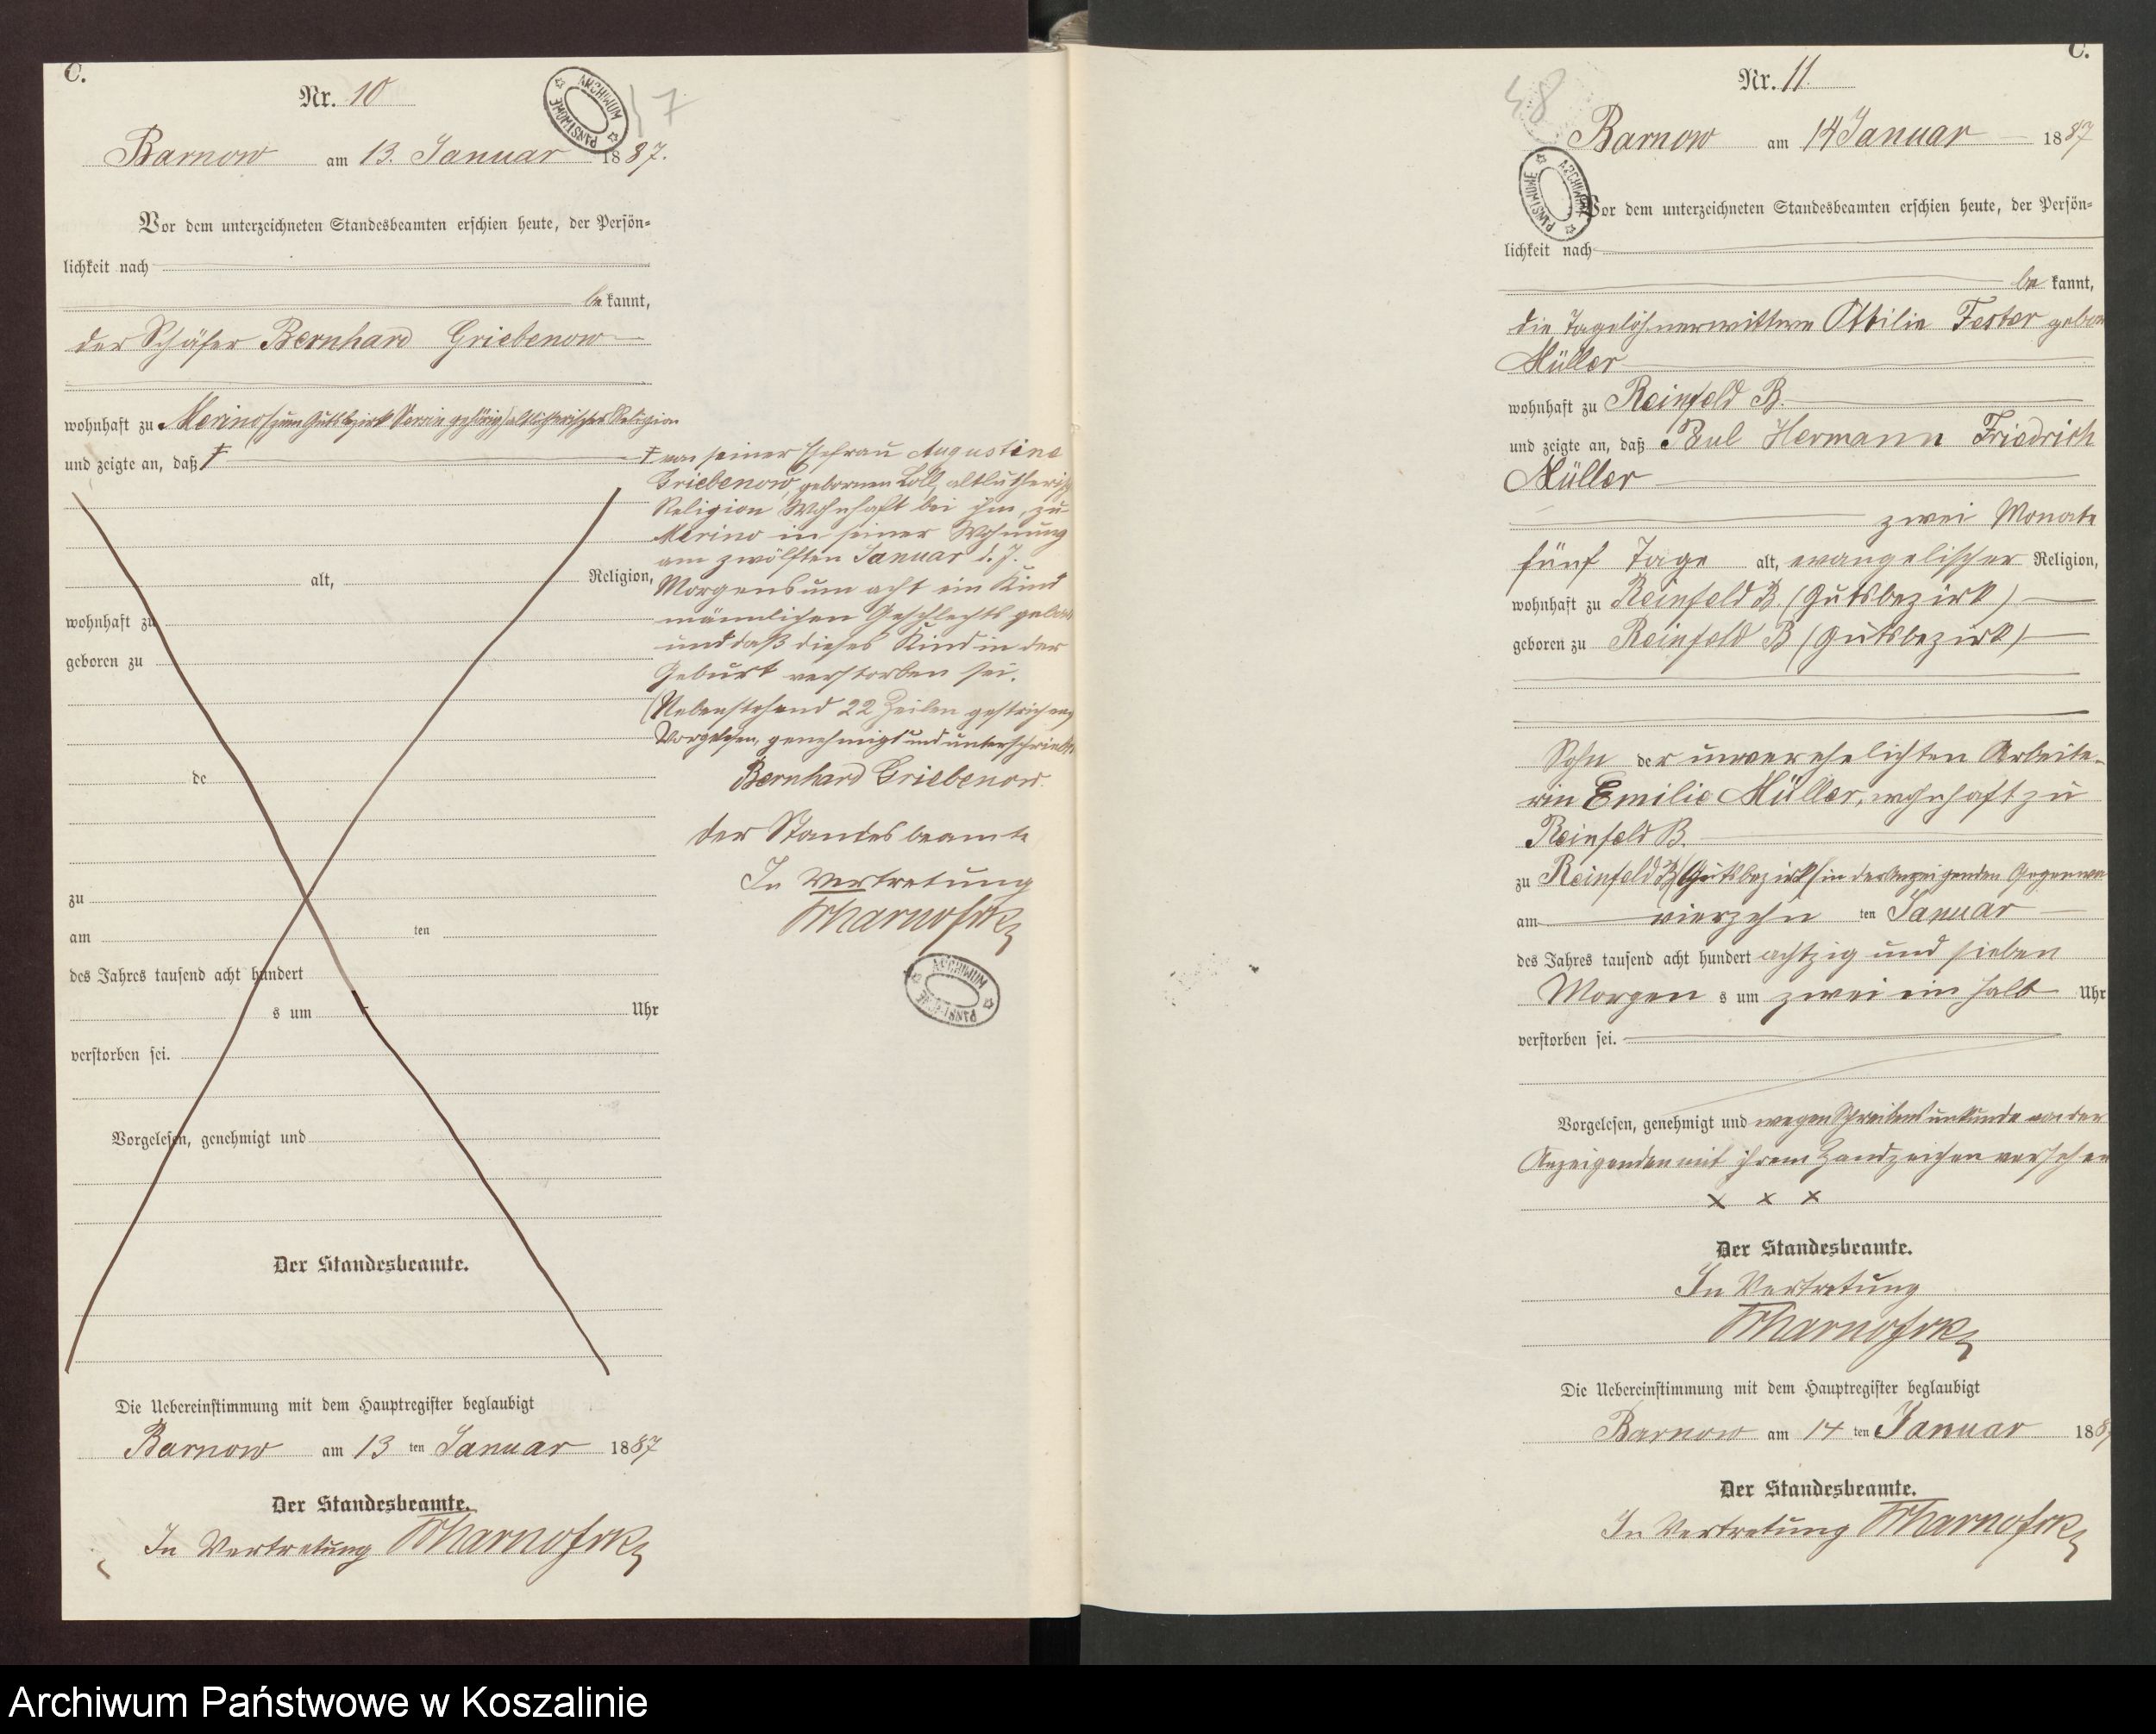 C.
Nr. 10
ARCHIWUM PAŃSTWOWE
Barnow am 13. Januar 1887.
Vor dem unterzeichneten Standesbeamten erschien heute, der Persön-
lichkeit nach
bekannt,
der Schäfer Bernhard Griebenow
wohnhaft zu Merino (zum Gutsbezirk gehörig) altlutherischer Religion
und zeigte an, daß †
† von seiner Ehefrau Augustine
Griebenow, gebornen Loll, altlutherisch
Religion Wohnhaft bei ihm, zu
Merino in seiner Wohnung
am zwölften Januar d. J.
Morgens um acht ein Kind
männlichen Geschlechts gebor
und daß dieses Kind in der
Geburt verstorben sei.
(Nebenstehend 22 Zeilen gestrichen)
Vorgelesen, genehmigt und unterschrieb
Bernhard Griebenow.
der Standesbeamte
In Vertretung
ARCHIWUM PAŃSTWOWE
alt, Religion,
wohnhaft zu
geboren zu
de
zu
am ten
des Jahres tausend acht hundert
s um Uhr
verstorben sei.
Vorgelesen, genehmigt und
Der Standesbeamte.
Die Uebereinstimmung mit dem Hauptregister beglaubigt
Barnow am 13 ten Januar 1887
Der Standesbeamte.
In Vertretung
C.
Nr. 11.
48
Barnow am 14 Januar 1887
ARCHIWUM PAŃSTWOWE
Vor dem unterzeichneten Standesbeamten erschien heute, der Persön-
lichkeit nach
be kannt,
die Tagelöhnerwittwe Ottilie Fester gebor
Müller
wohnhaft zu Reinfeld B.
und zeigte an, daß Paul Hermann Friedrich
Müller
zwei Monate
fünf Tage alt, evangelischer Religion,
wohnhaft zu Reinfeld B (Gutsbezirk)
geboren zu Reinfeld B (Gutsbezirk)
Sohn der unverehelichten Arbeite-
rin Emilie Müller, wohnhaft zu
Reinfeld B.
zu Reinfeld B (Gutsbezirk) in der Anzeigenden Gegenwa
am vierzehn ten Januar
des Jahres tausend acht hundert achtzig und sieben
Morgen s um zwei ein halb Uhr
verstorben sei.
Vorgelesen, genehmigt und wegen Schreibensunkunde von der
Anzeigenden mit ihrem Handzeichen versehen
x x x
Der Standesbeamte.
In Vertretung
Die Uebereinstimmung mit dem Hauptregister beglaubigt
Barnow am 14 ten Januar 188
Der Standesbeamte.
In Vertretung
Archiwum Państwowe w Koszalinie